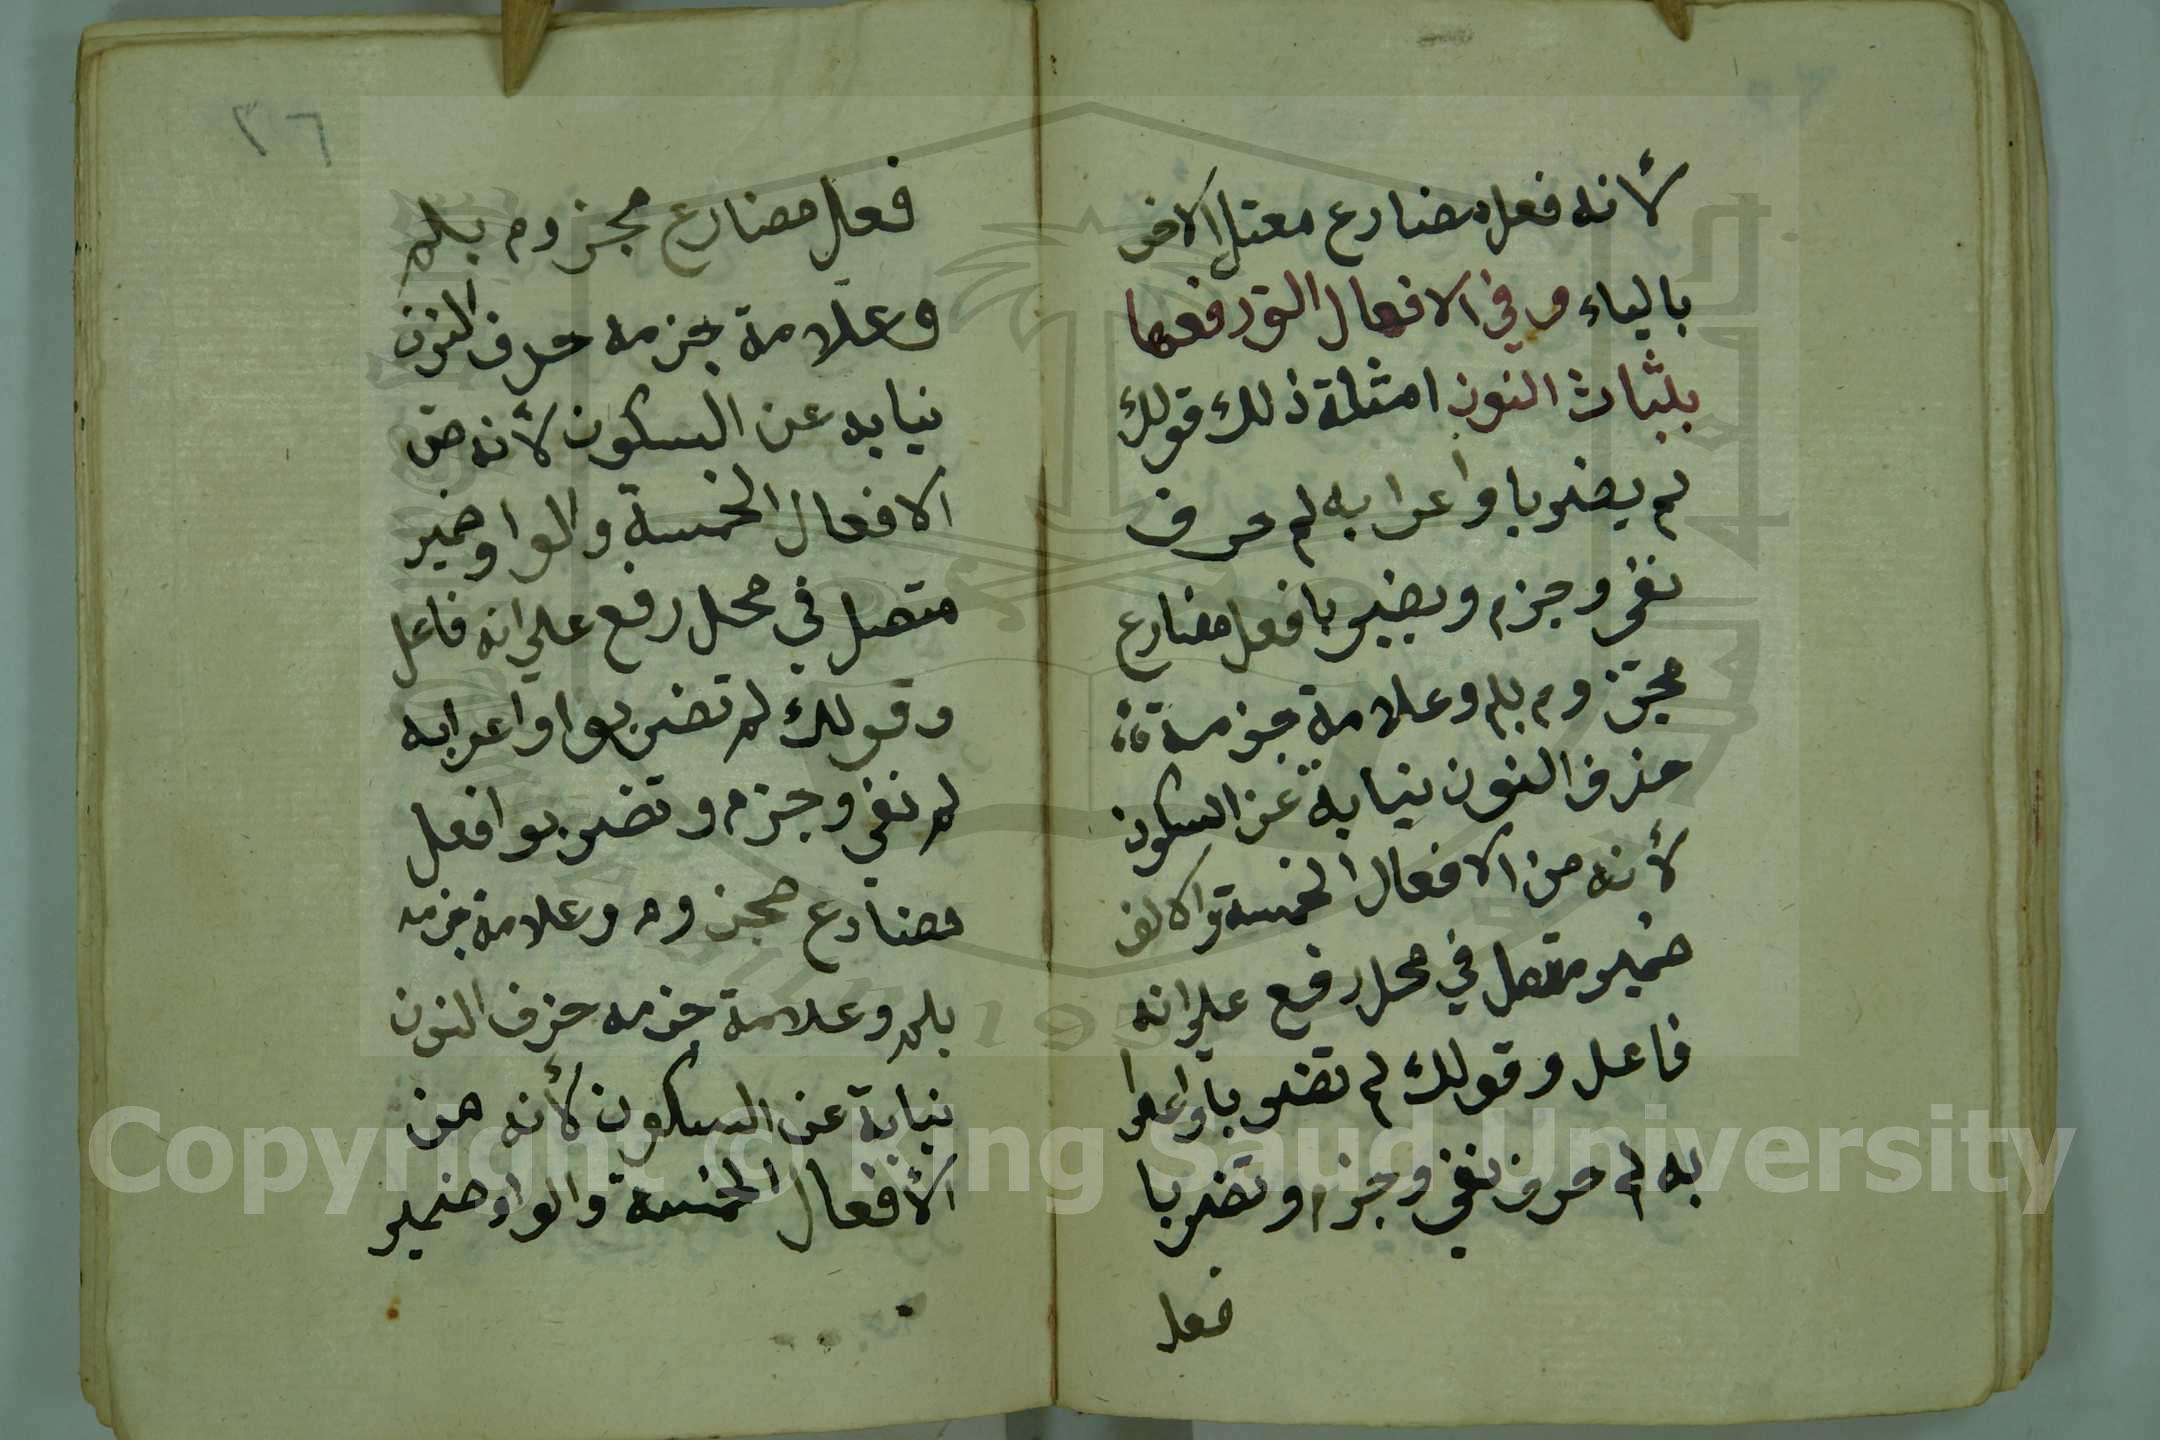 لأنه فعل مضارع معتل الاخر
بالياء وفي الافعال التي رفعها
بثبات النون امثلة ذلك قولك
لم يضربا واعرابه لم حرف
نفي وجزم ويضربا فعل مضارع
مجزوم بلم وعلامة جزمة
حذف النون نيابة عن السكون
لأنه من الافعال الخمسة والالف
ضمير متصل في محل رفع على انه
فاعل وقولك لم تضربا واعرا
به لم حرف نفي وجزم وتضربا
فعل
٣٦
فعل مضارع مجزوم بلم
وعلامة جزمه حذف النون
نيابه عن السكون لأنه من
الافعال الخمسة والواو ضمير
متصل في محل رفع على انه فاعل
وقولك لم تضربوا واعرابه
لم نفي وجزم وتضربوا فعل
مضارع مجزوم وعلامة جزمه
بلم وعلامة جزمه حزف النون
نيابة عن السكون لأنه من
الأفعال الخمسة والواو ضمير
Copyright © King Saud University